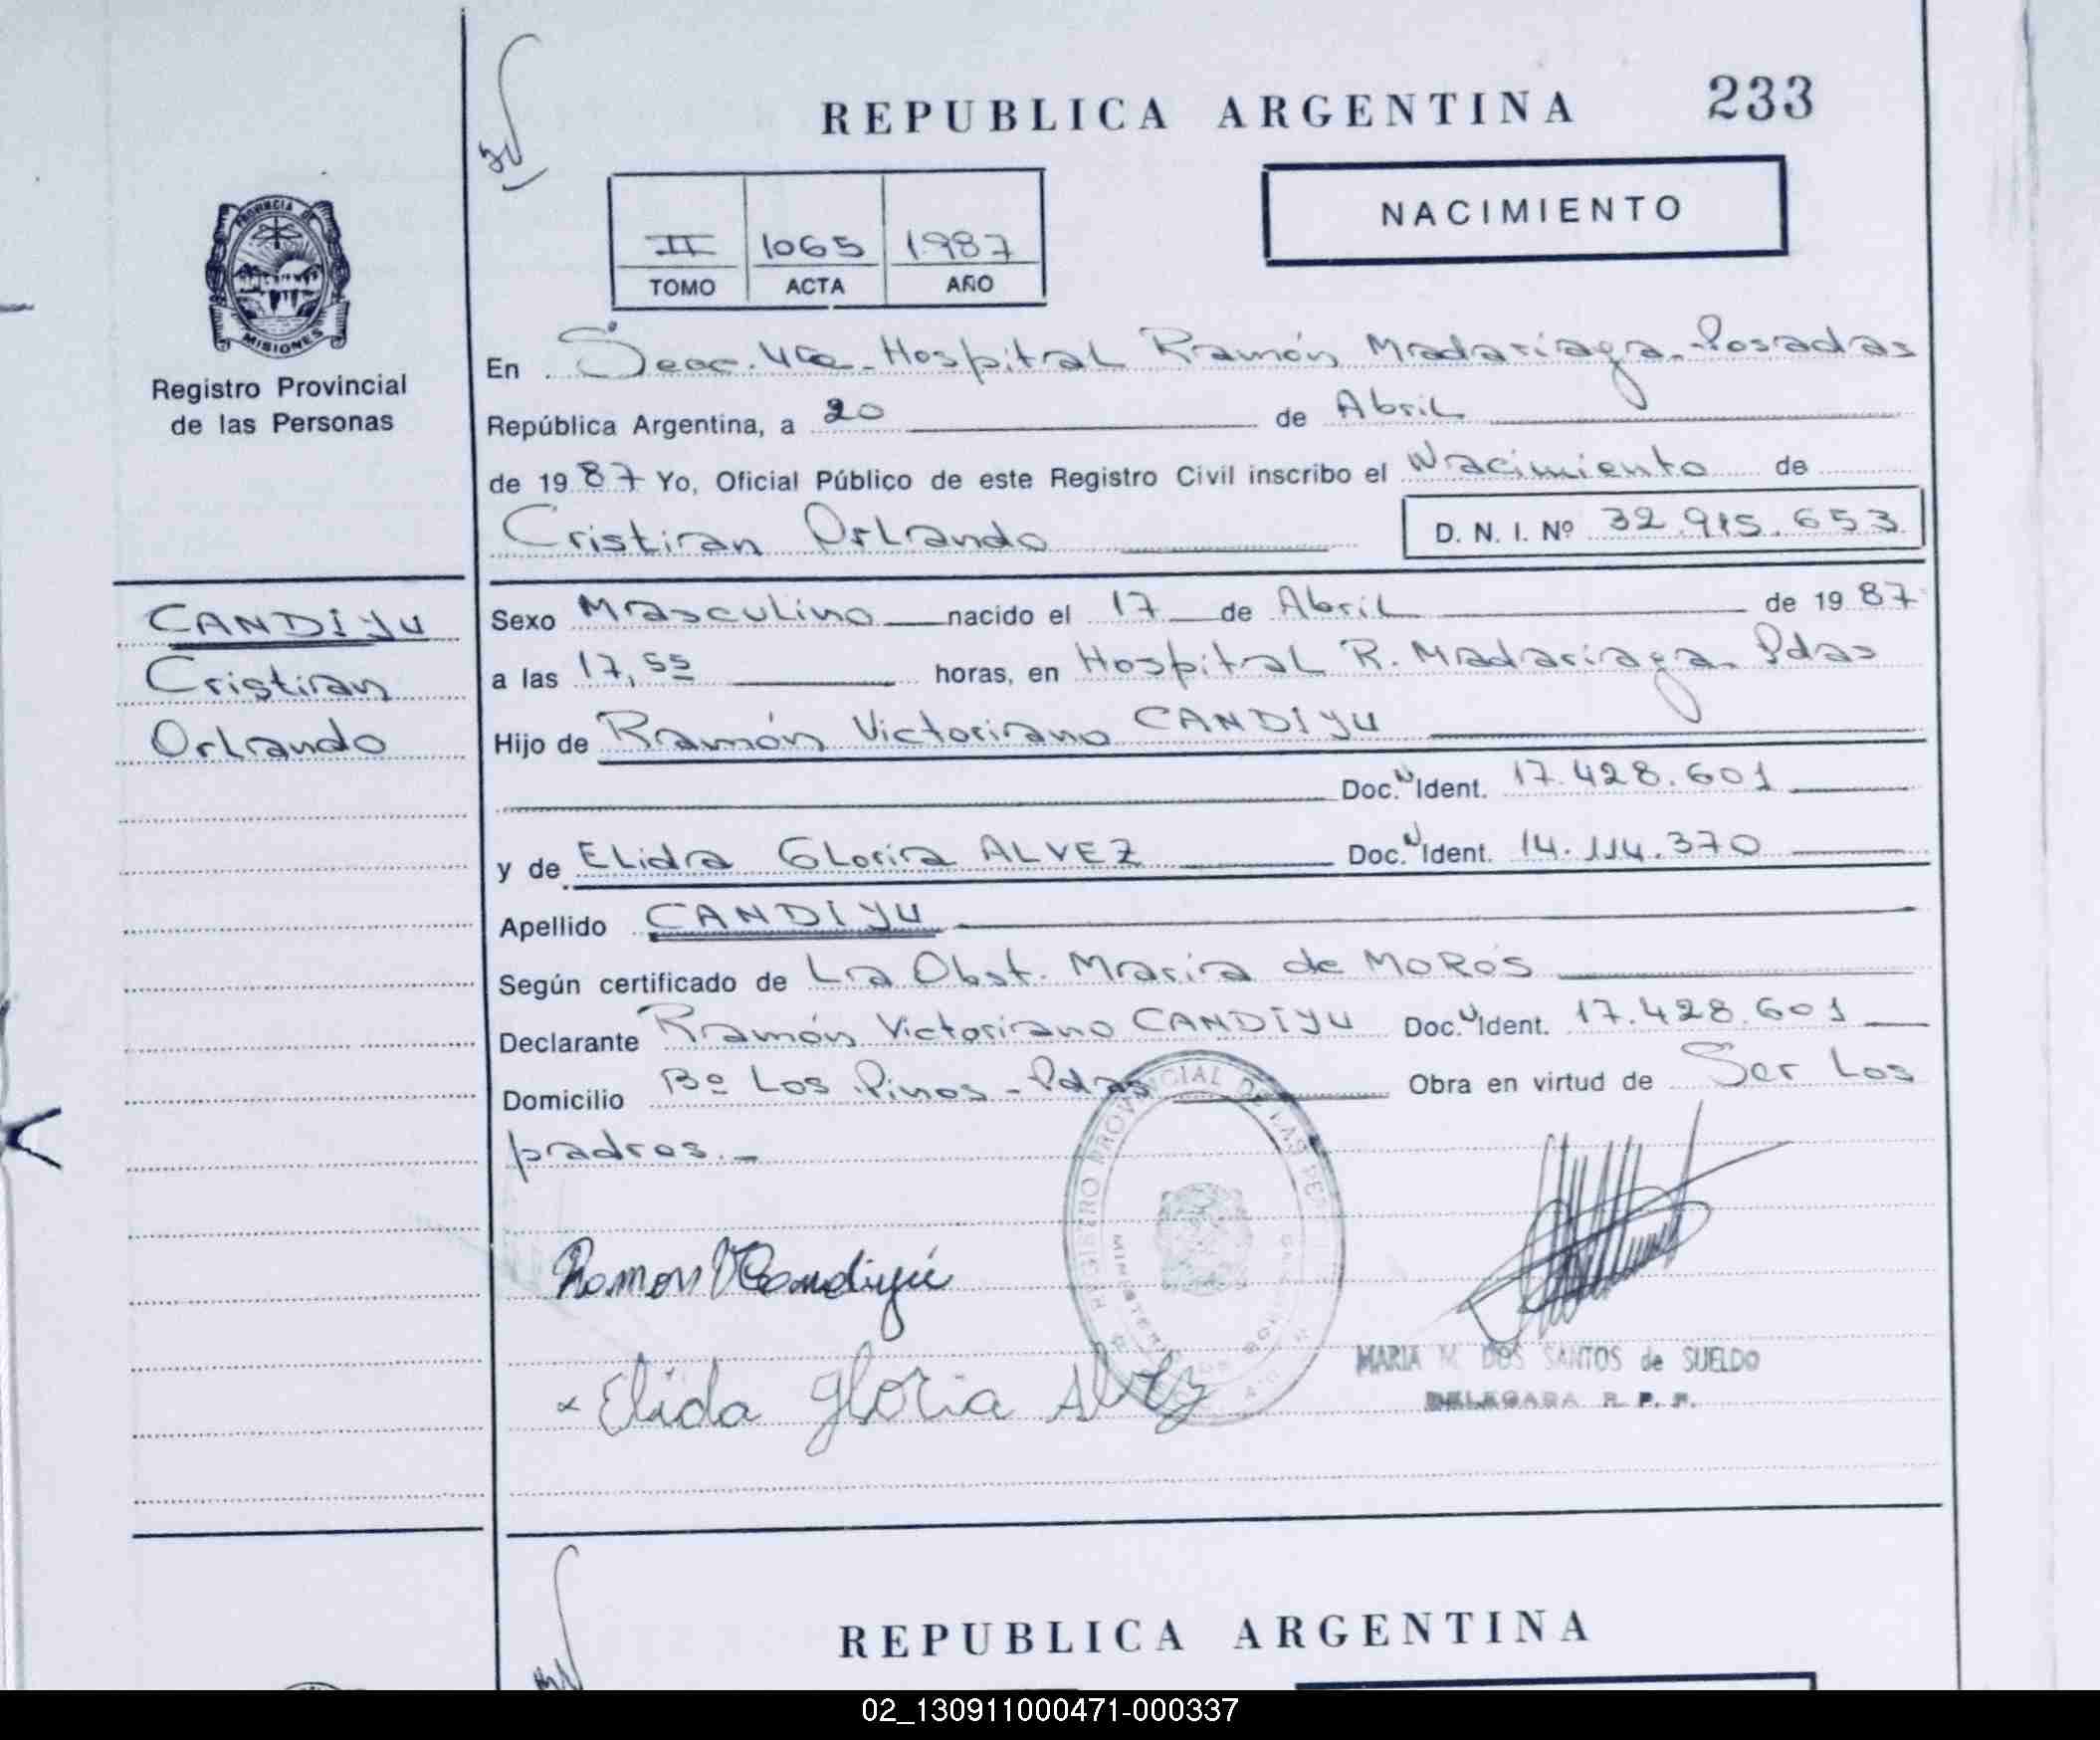 REPUBLICA ARGENTINA 233
NACIMIENTO
II 1065 1987
TOMO ACTA AÑO
PROVINCIA DE
MISIONES
Registro Provincial
de las Personas
En Secc. 4ta. Hospital Ramón Madariaga - Posadas
República Argentina, a 20 de Abril
de 1987 Yo, Oficial Público de este Registro Civil inscribo el Nacimiento de
Cristian Orlando D. N. I. Nº 32.915.653
CANDIYU
Cristian
Orlando
Sexo Masculino nacido el 17 de Abril de 1987
a las 17,55 horas, en Hospital R. Madariaga - Pdas
Hijo de Ramón Victoriano CANDIYU
Doc. N Ident. 17.428.601
y de Elida Gloria ALVEZ Doc. N Ident. 14.114.370
Apellido CANDIYU
Según certificado de La Obst. María de MOROS
Declarante Ramón Victoriano CANDIYU Doc. N Ident. 17.428.601
Domicilio Bº Los Pinos - Pdas Obra en virtud de Ser Los
padres.-
REGISTRO PROVINCIAL DE LAS PE
MINISTERIO DE GOB
Ramon V Candiyú
x Elida Gloria Alvez
MARIA M. DOS SANTOS de SUELDO
DELEGADA R. P. P.
REPUBLICA ARGENTINA
02_130911000471-000337